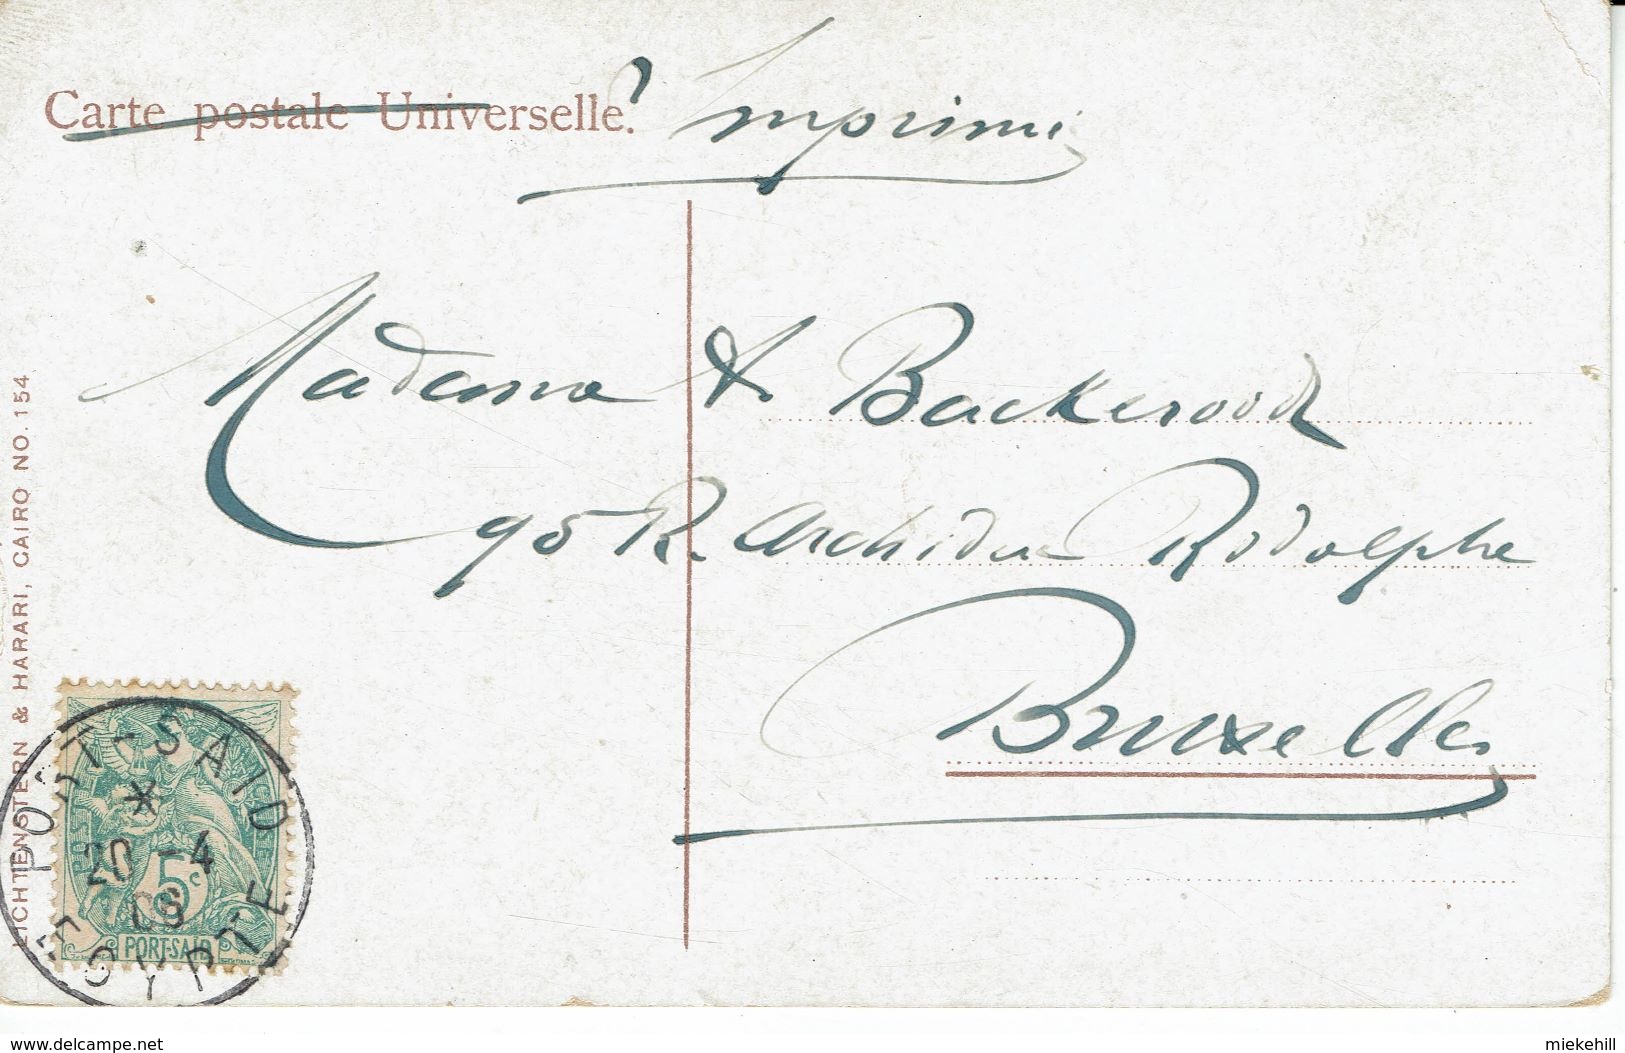 Carte postale Universelle.
Imprimé
Madame A. Backerood
95 R. Archiduc Rodolphe
Bruxelles
LICHTENSTERN & HARARI, CAIRO NO. 154
PORT-SAID
20 -4
EGYPTE
5c
PORT-SAID
www.delcampe.net
miekehill